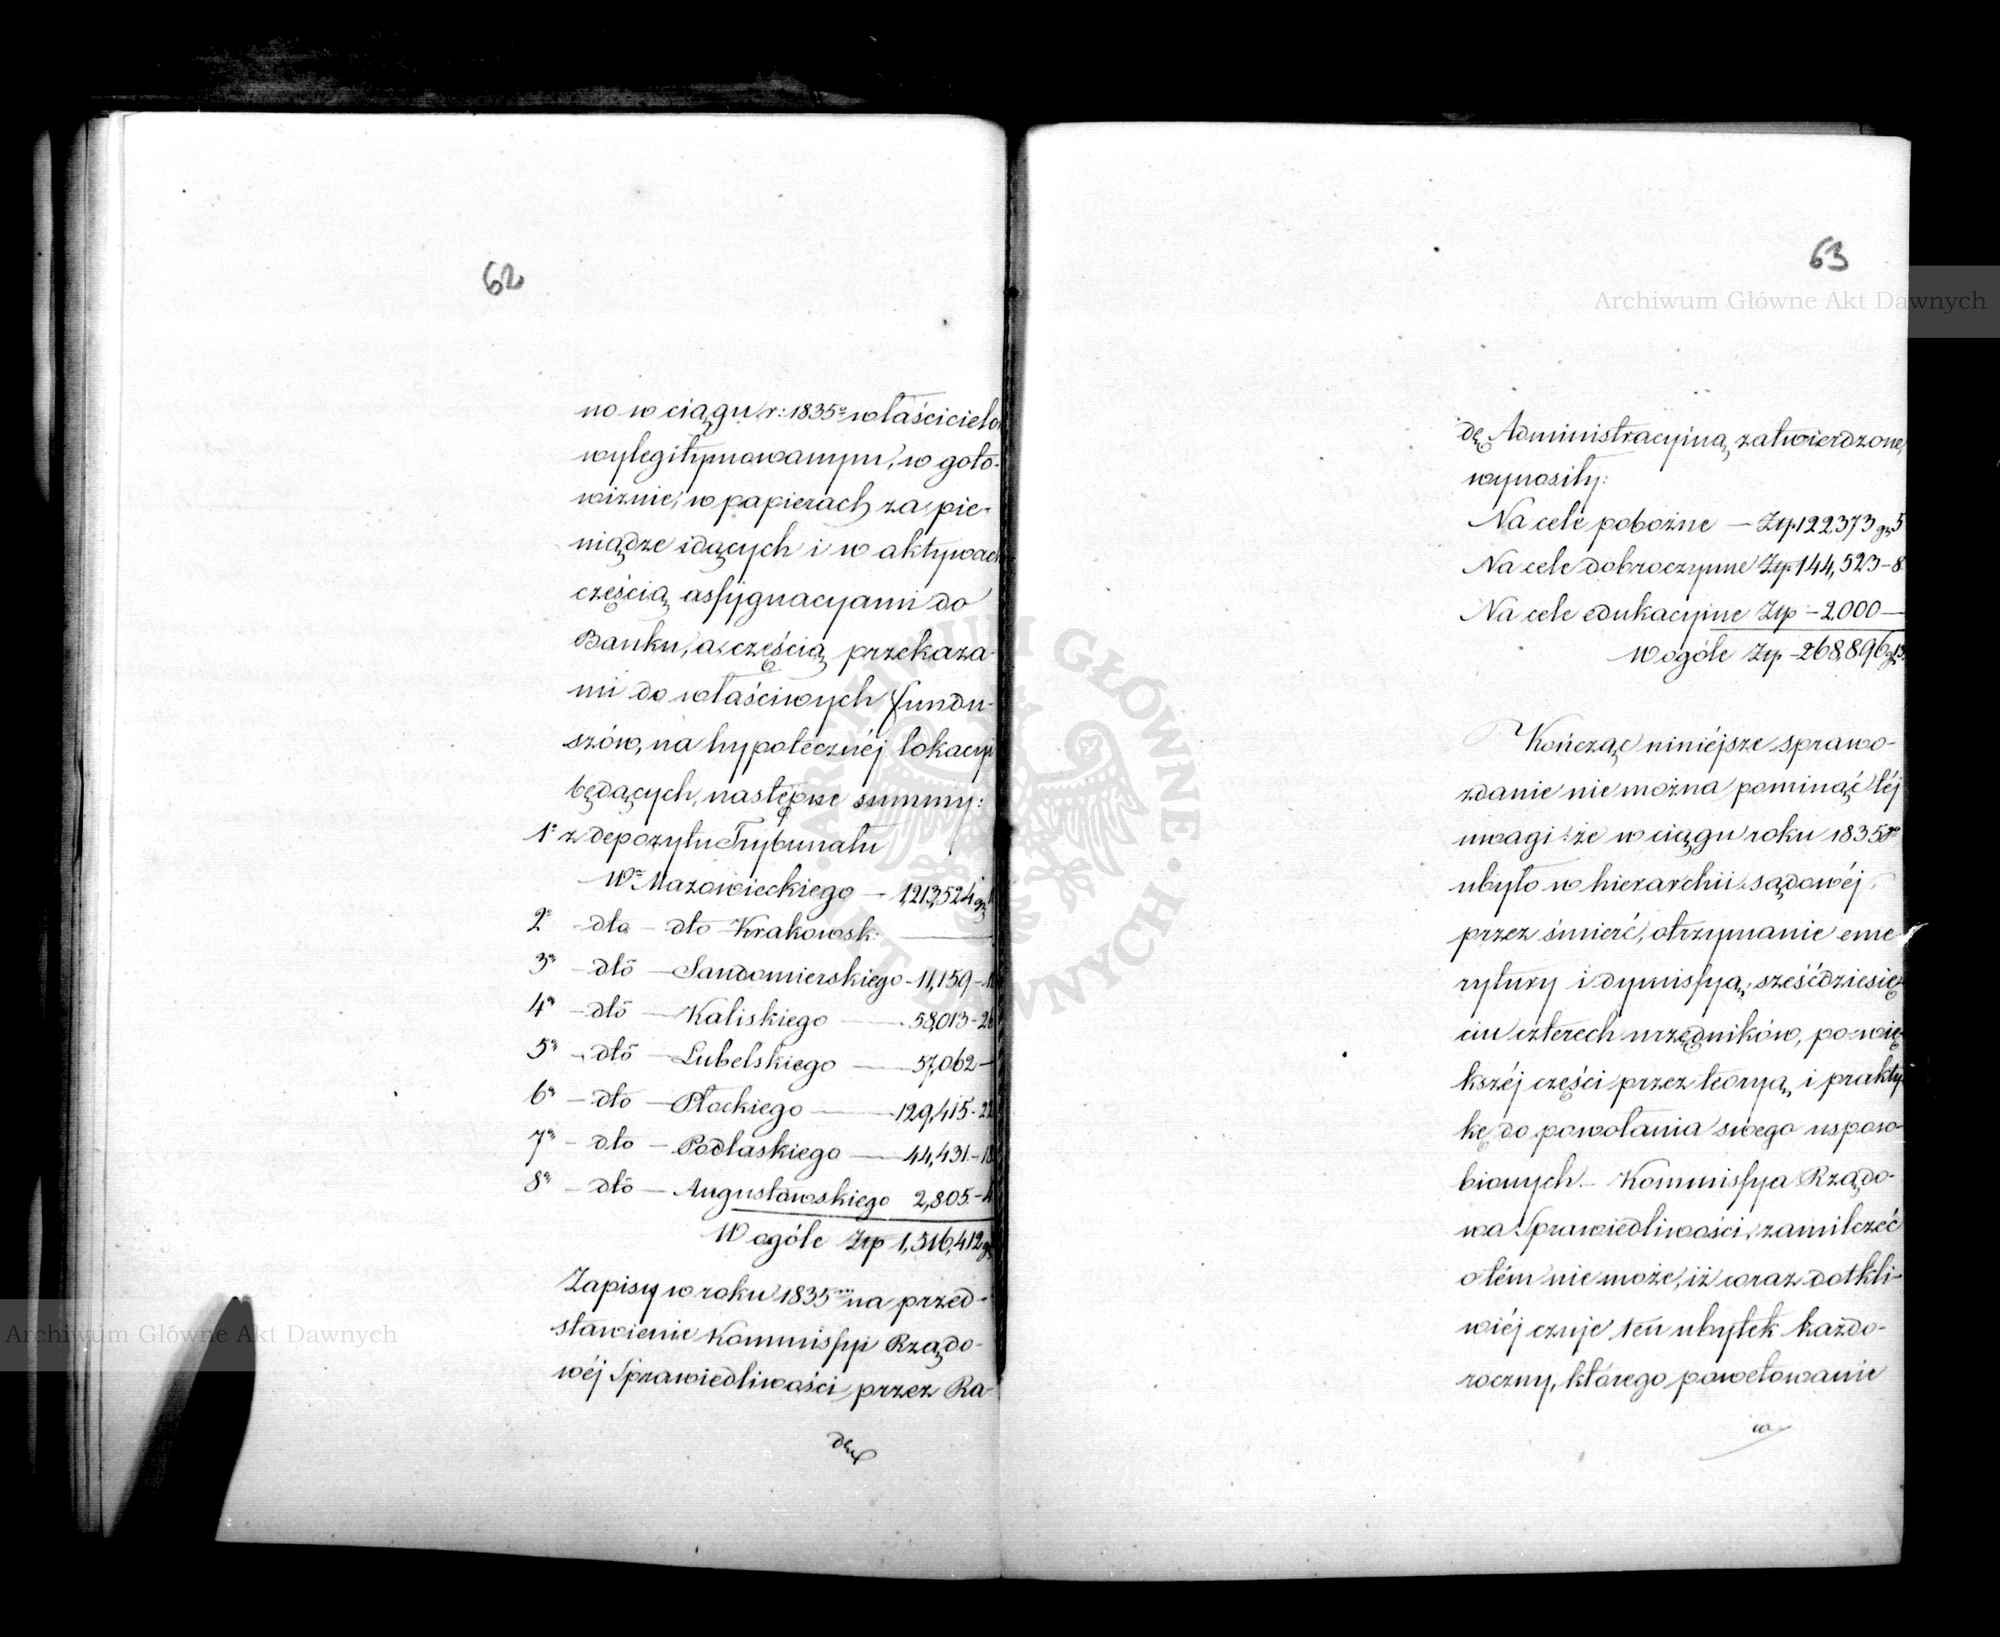 62
no w ciągu r: 1835º właścicielom
wylegitymowanym, w goto-
wiznie, w papierach za pie-
niądze idących i w aktywach
częścią assygnacyami do
Banku, a częścią przekaza-
mi do właściwych fundu-
szów, na hypotecznéj lokacyi
będących, następne summy:
1º z depozytu Trybunału
Wª Mazowieckiego — 1,213,524 gr
2º — dto — dto Krakowsk: ———
3º — dtõ — Sandomierskiego - 11,159 -
4º — dtõ — Kaliskiego —— 58,013 - 26
5º — dtõ — Lubelskiego —— 57,062 —
6º — dto — Płockiego —— 129,415 - 22
7º — dto — Podlaskiego —— 44,431 - 18
8º — dtõ — Augustowskiego 2,805. -
W ogóle Złp 1,516,412 gr
Zapisy w roku 1835ᵐ na przed-
stawienie Kommissyi Rządo-
wéj Sprawiedliwości przez Ra-
dę
63
dę Administracyjną zatwierdzone,
wynosiły:
Na cele pobożne — Złp 122373 gr 5
Na cele dobroczynne Złp 144,523 - 8
Na cele edukacyjne Złp - 2000 —
W ogóle Złp - 268,896 gr 13.
Kończąc niniéjsze sprawo-
zdanie nie można pominąć téj
uwagi: że w ciągu roku 1835º
ubyło w hierarchii sądowéj,
przez śmierć, otrzymanie eme-
rytury i dymissyą, sześćdziesię-
ciu czterech urzędników, po wię-
kszéj części przez teoryą, i prakty-
kę do powołania swego usposo-
bionych. — Kommissya Rządo-
wa Sprawiedliwości, zamilczeć
o tém nie może, iż coraz dotkli-
wiéj czuje ten ubytek każdo-
roczny, którego powetowanie
Archiwum Główne Akt Dawnych
Archiwum Główne Akt Dawnych
ARCHIWUM GŁÓWNE AKT DAWNYCH